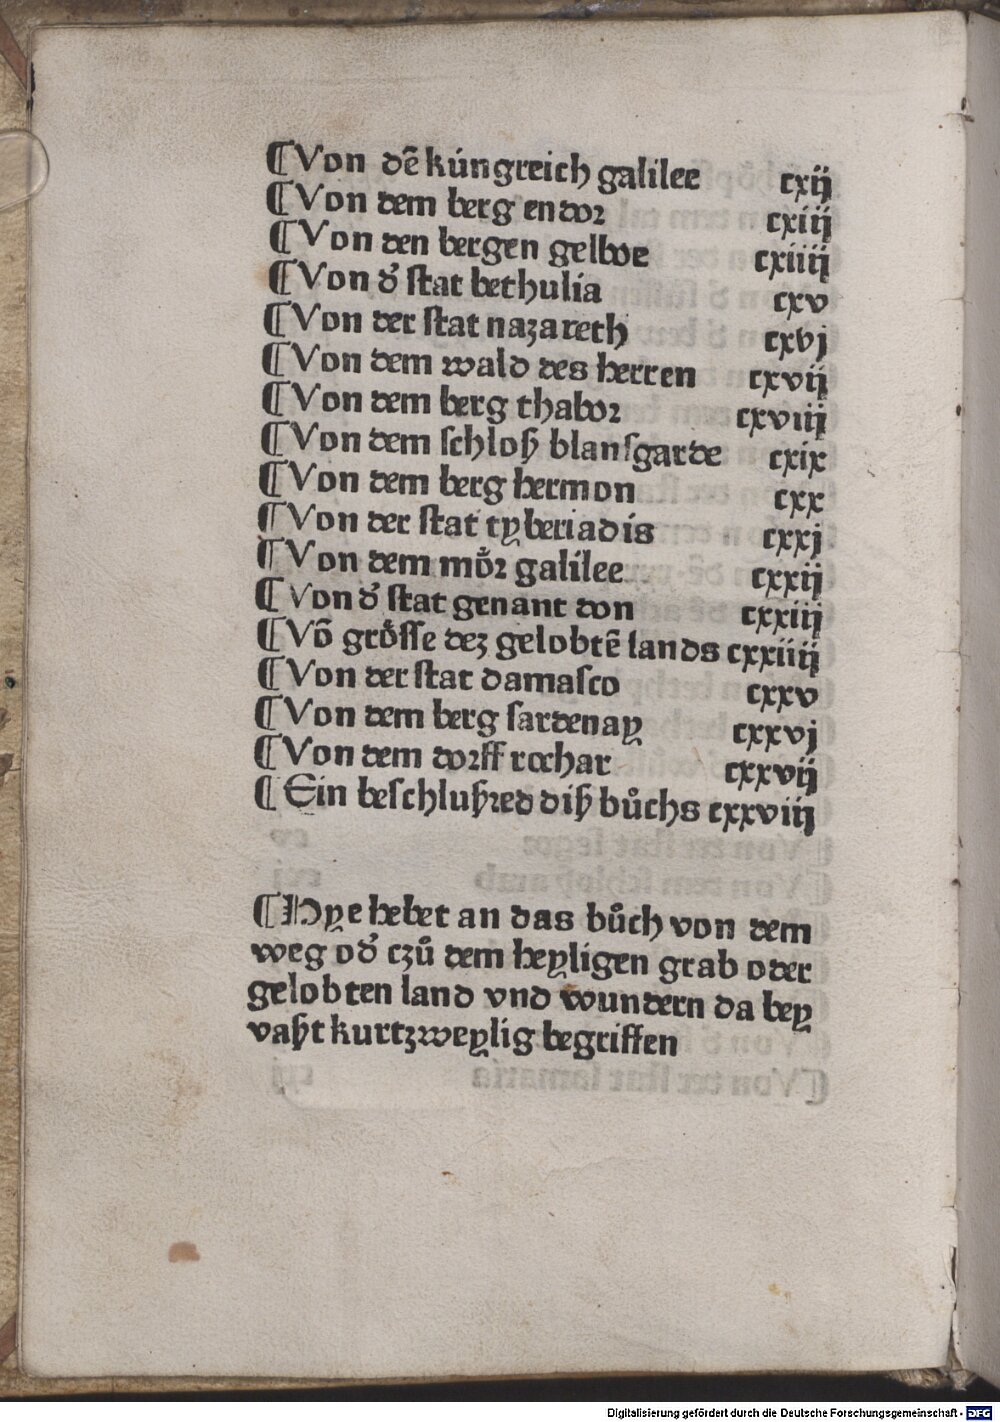 ¶Von dē kúngreich galilee cxij
¶Von dem berg endoꝛ cxiij
¶Von den bergen gelboe cxiiij
¶Von dˀ stat bethulia cxv
¶Von der stat nazareth cxvj
¶Von dem wald des herren cxvij
¶Von dem berg thaboꝛ cxviij
¶Von dem schloß blansgarde cxix
¶Von dem berg hermon cxx
¶Von der stat tyberiadis cxxj
¶Von dem moͤꝛ galilee cxxij
¶Von dˀ stat genant don cxxiij
¶Vō groͤsse dez gelobtē lands cxxiiij
¶Von der stat damasco cxxv
¶Von dem berg sardenay cxxvj
¶Von dem doꝛff rochar cxxvij
¶Ein beschlußꝛed diß bůchs cxxviij
¶Hye hebet an das bůch von dem
weg odˀ czů dem heyligen grab oder
gelobten land vnd wundern da bey
vaßt kurtzweylig begriffen
Digitalisierung gefördert durch die Deutsche Forschungsgemeinschaft - DFG